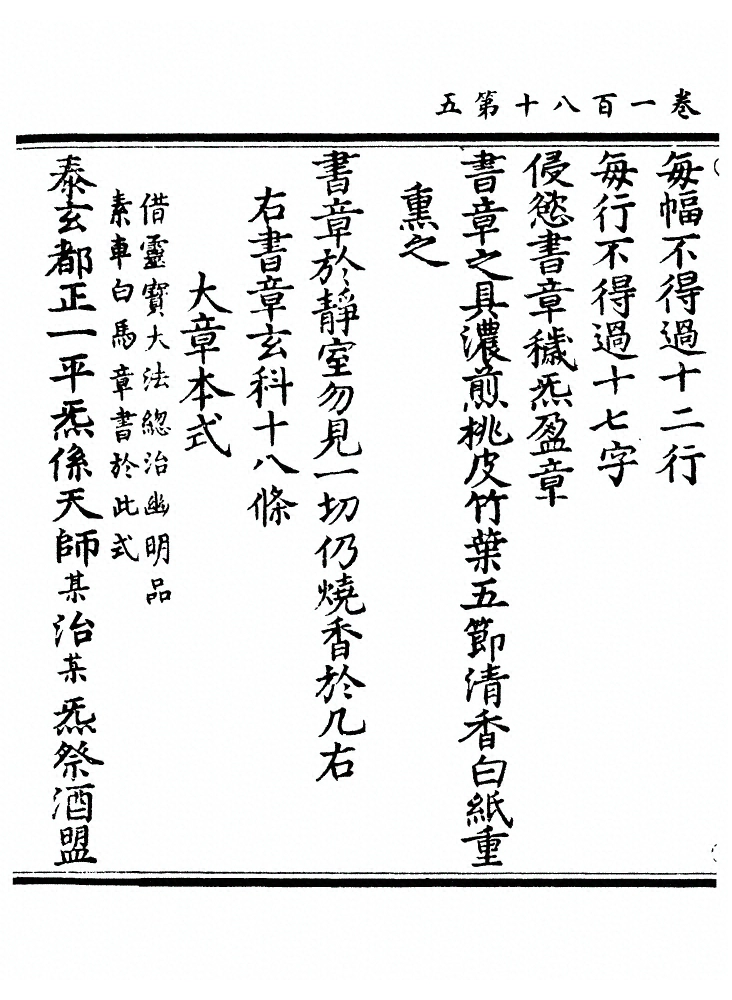 卷一百八十第五
每幅不得過十二行
每行不得過十七字
侵慾書章穢炁盈章
書章之具濃煎桃皮竹葉五節清香白紙重
熏之
書章於靜室勿見一切仍燒香於几右
右書章玄科十八條
大章本式
借靈寶大法總治幽明品
素車白馬章書於此式
泰玄都正一平炁係天師某治某炁祭酒盟